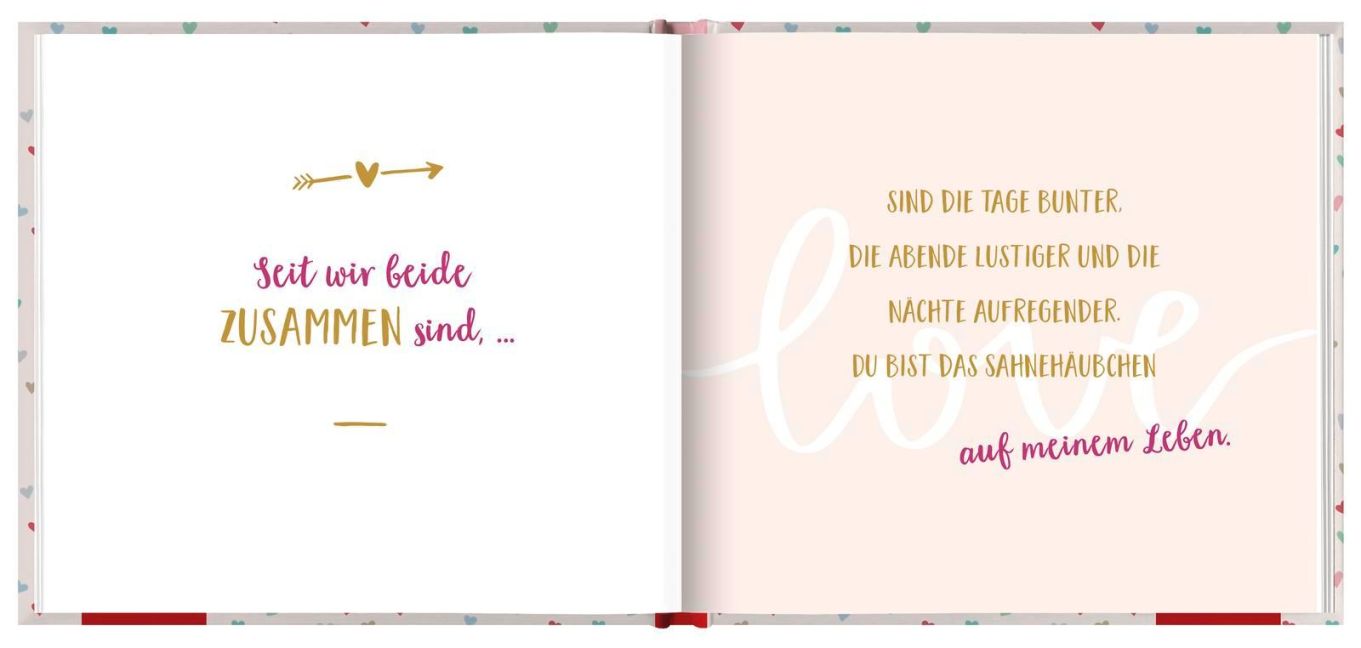 Seit wir beide
ZUSAMMEN sind, ...
love
SIND DIE TAGE BUNTER,
DIE ABENDE LUSTIGER UND DIE
NÄCHTE AUFREGENDER.
DU BIST DAS SAHNEHÄUBCHEN
auf meinem Leben.